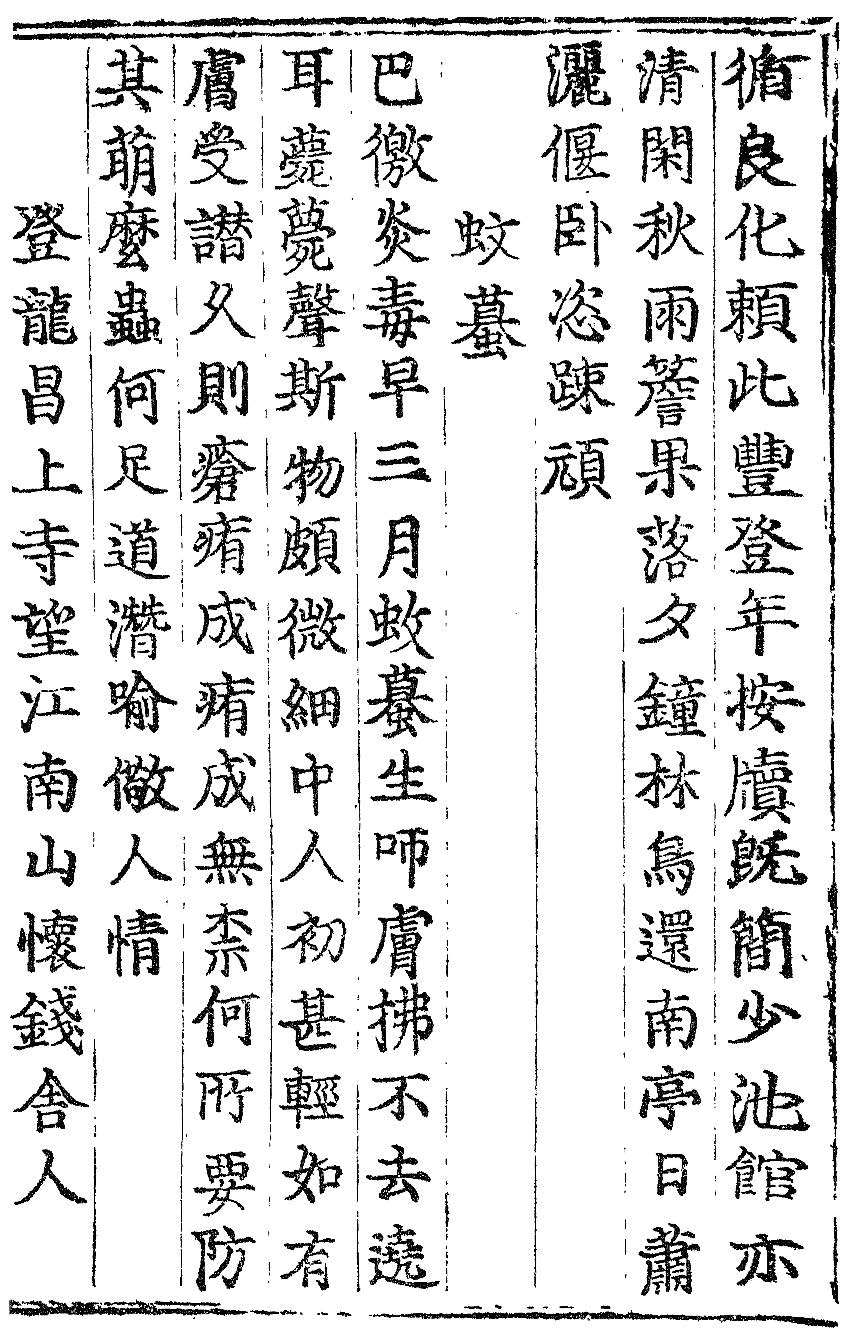 循良化頼此豐登年按牘旣簡少池館亦
清閑秋雨簷果落夕鐘林鳥還南亭日蕭
灑偃卧恣踈頑
蚊蟇
巴徼炎毒早三月蚊蟇生咂膚拂不去遶
耳薨薨聲斯物頗微細中人初甚輕如有
膚受譖乆則瘡痏成痏成無柰何所要防
其萌麼蟲何足道潛喻儆人情
登龍昌上寺望江南山懷錢舍人